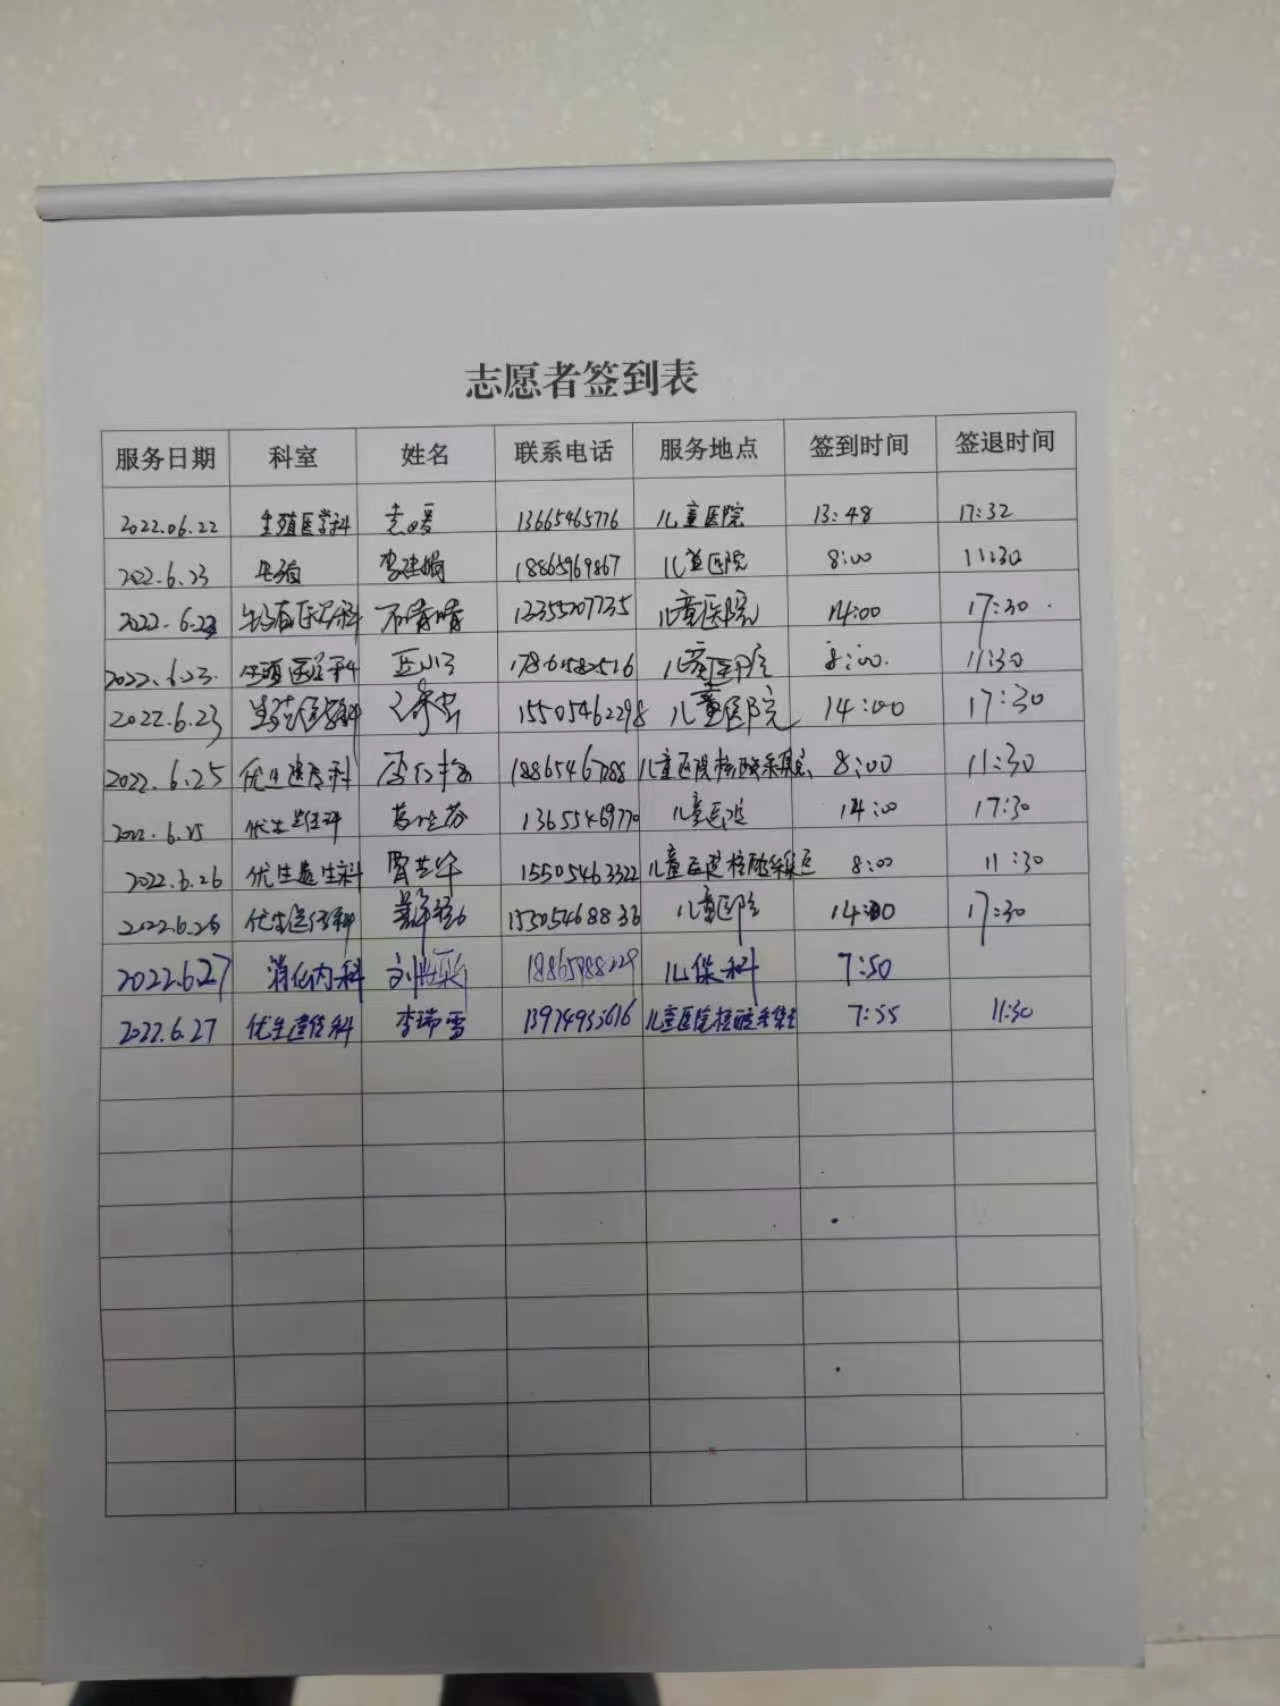 志愿者签到表
服务日期 科室 姓名 联系电话 服务地点 签到时间 签退时间
2022.06.22 生殖医学科 13665465776 儿童医院 13:48 17:32
2022.6.23 生殖 李建娟 18865969867 儿童医院 8:00 11:30
2022.6.23 生殖医学科 晴晴 儿童医院 14:00 17:30
2022.6.23. 生殖医学科 儿童医院 8:00. 11:30
2022.6.23 生殖医学科 15505462298 儿童医院 14:00 17:30
2022.6.25 优生遗传科 儿童医院核酸采集点 8:00 11:30
2022.6.25 优生遗传科 儿童医院 14:00 17:30
2022.6.26 优生遗传科 15505463322 儿童医院核酸采集点 8:00 11:30
2022.6.26 优生遗传科 儿童医院 14:00 17:30
2022.6.27 消化内科 儿保科 7:50
2022.6.27 优生遗传科 李瑞雪 儿童医院核酸采集点 7:55 11:30